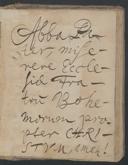 Abba Pa-
ter, mise-
rere Eccle-
siæ Fra-
trū Bohe-
morum pro-
pter CHRI-
STVM Amen!